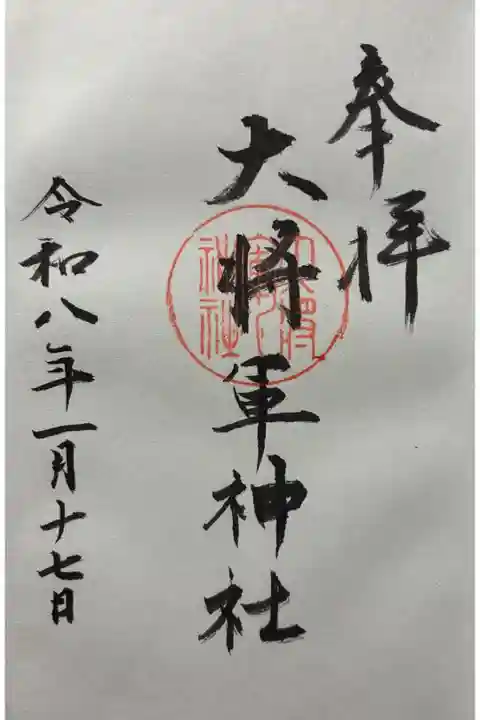 奉拝
大将軍神社
令和八年一月十七日